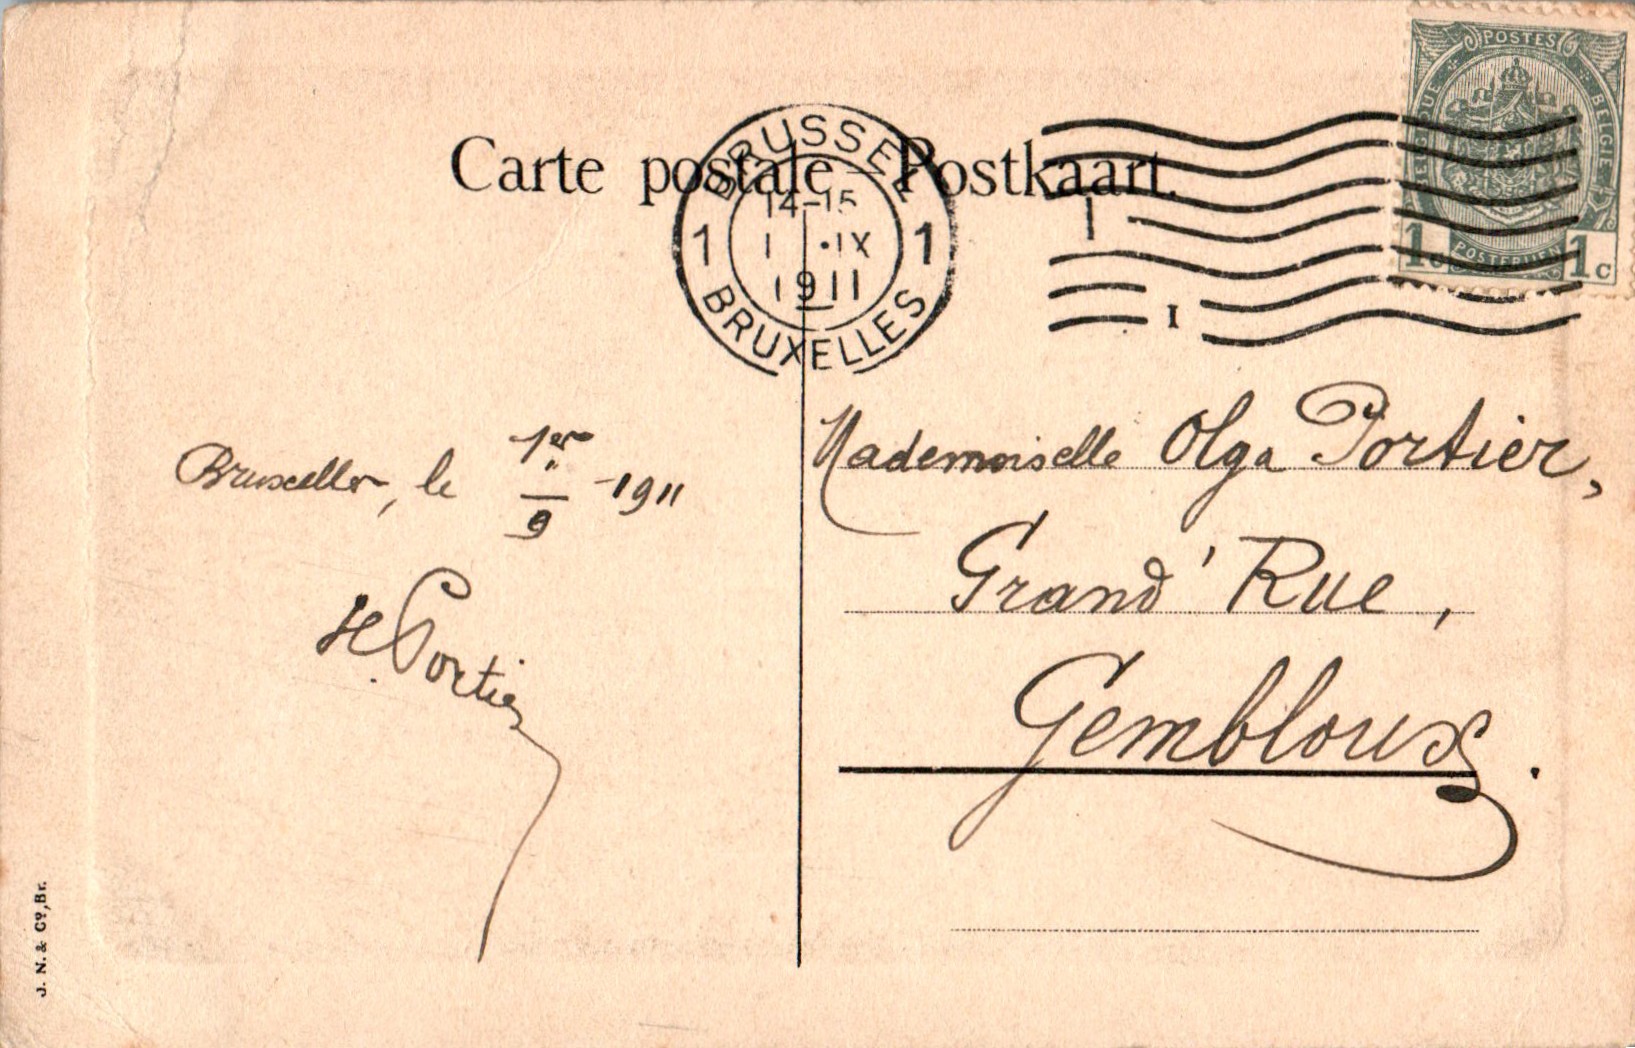 Carte postale – Postkaart.
BRUSSEL
14-15
1 1 .IX 1
1911
BRUXELLES
I
I
POSTES
BELGIQUE BELGIË
1c POSTERIJEN 1c
Bruxelles, le 1er/9 -1911
H. Portier
Mademoiselle Olga Portier,
Grand' Rue,
Gembloux.
J. N. & Co, Br.